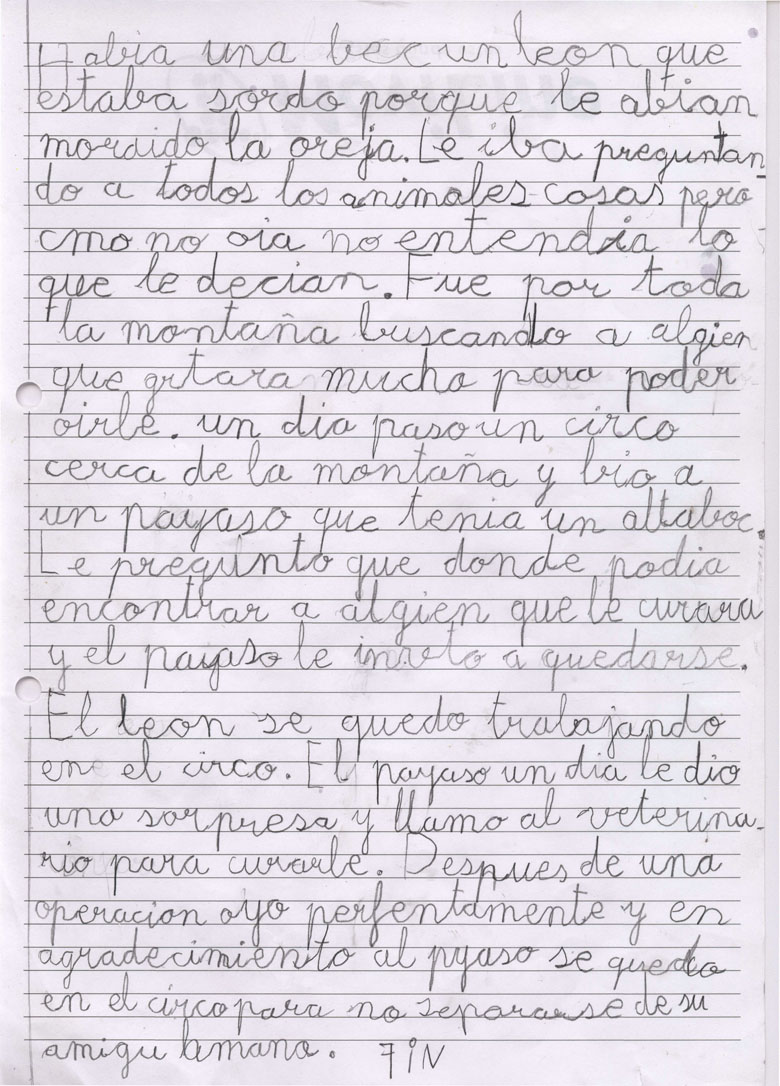 Habia una bec un leon que
estaba sordo porque le abian
mordido la oreja. Le iba preguntan
do a todos los animales cosas pero
cmo no oia no entendia lo
que le decian. Fue por toda
la montaña buscando a algien
que gritara mucho para poder
oirle. un dia paso un circo
cerca de la montaña y bio a
un payaso que tenia un altaboc.
Le pregunto que donde podia
encontrar a algien que le curara
y el payaso le inveto a quedarse.
El leon se quedo trabajando
en el circo. El payaso un dia le dio
una sorpresa y llamo al veterina-
rio para curarle. Despues de una
operacion oyo perfentamente y en
agradecimiento al pyaso se quedo
en el circo para no separarse de su
amigu umano. FIN